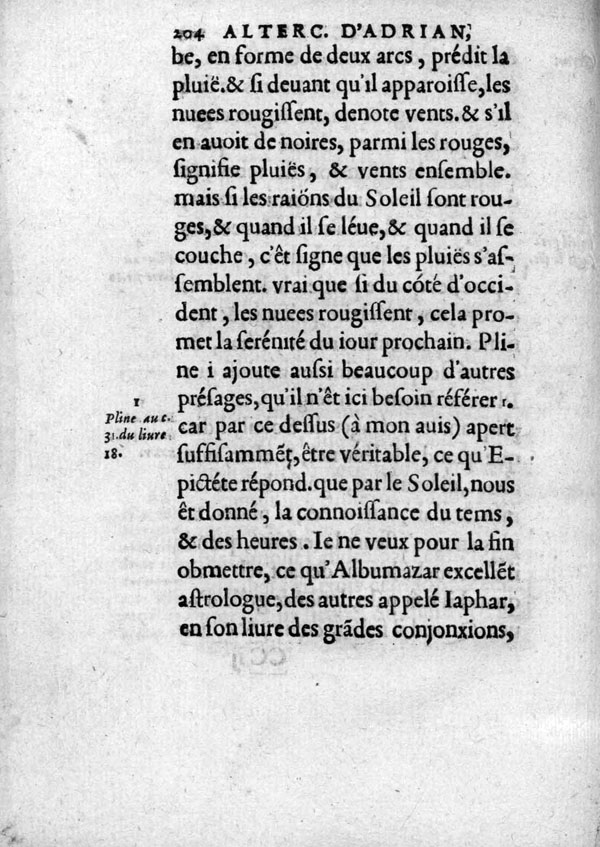 204 ALTERC. D'ADRIAN,
be, en forme de deux arcs, prédit la
pluië. & ſi deuant qu'il apparoiſſe, les
nuees rougiſſent, denote vents. & s'il
en auoit de noires, parmi les rouges,
ſignifie pluiës, & vents enſemble.
mais ſi les raións du Soleil ſont rou-
ges, & quand il ſe léue, & quand il ſe
couche, c'êt ſigne que les pluiës s'aſ-
ſemblent. vrai que ſi du cóté d'occi-
dent, les nuees rougiſſent, cela pro-
met la ſerénité du iour prochain. Pli-
ne i ajoute auſsi beaucoup d'autres
préſages, qu'il n'êt ici beſoin référer 1.
car par ce deſſus (à mon auis) apert
ſuffiſammẽt, être véritable, ce qu'E-
pictéte répond. que par le Soleil, nous
êt donné, la connoiſſance du tems,
& des heures. Ie ne veux pour la fin
obmettre, ce qu'Albumazar excellẽt
aſtrologue, des autres appelé Iaphar,
en ſon liure des grãdes conjonxions,
1
Pline au c.
31. du liure
18.